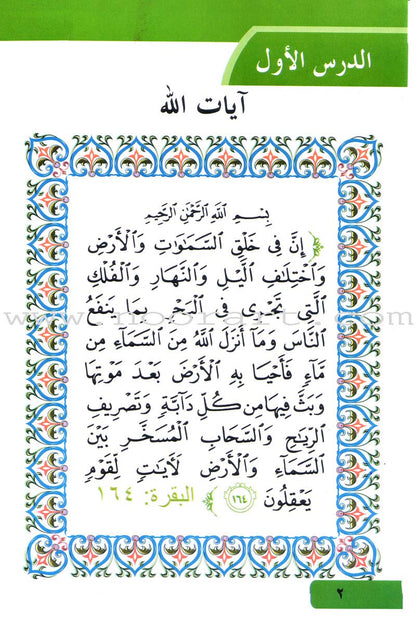 الدرس الأول
آيات الله
بِسْمِ اللَّهِ الرَّحْمَٰنِ الرَّحِيمِ
﴿ إِنَّ فِي خَلْقِ السَّمَٰوَٰتِ وَالْأَرْضِ
وَاخْتِلَٰفِ الَّيْلِ وَالنَّهَارِ وَالْفُلْكِ
الَّتِي تَجْرِي فِي الْبَحْرِ بِمَا يَنفَعُ
النَّاسَ وَمَا أَنزَلَ اللَّهُ مِنَ السَّمَاءِ مِن
مَّاءٍ فَأَحْيَا بِهِ الْأَرْضَ بَعْدَ مَوْتِهَا
وَبَثَّ فِيهَا مِن كُلِّ دَابَّةٍ وَتَصْرِيفِ
الرِّيَٰحِ وَالسَّحَابِ الْمُسَخَّرِ بَيْنَ
السَّمَاءِ وَالْأَرْضِ لَأَيَٰتٍ لِّقَوْمٍ
يَعْقِلُونَ ١٦٤ ﴾ البقرة: ١٦٤
www.noorart.com
٢